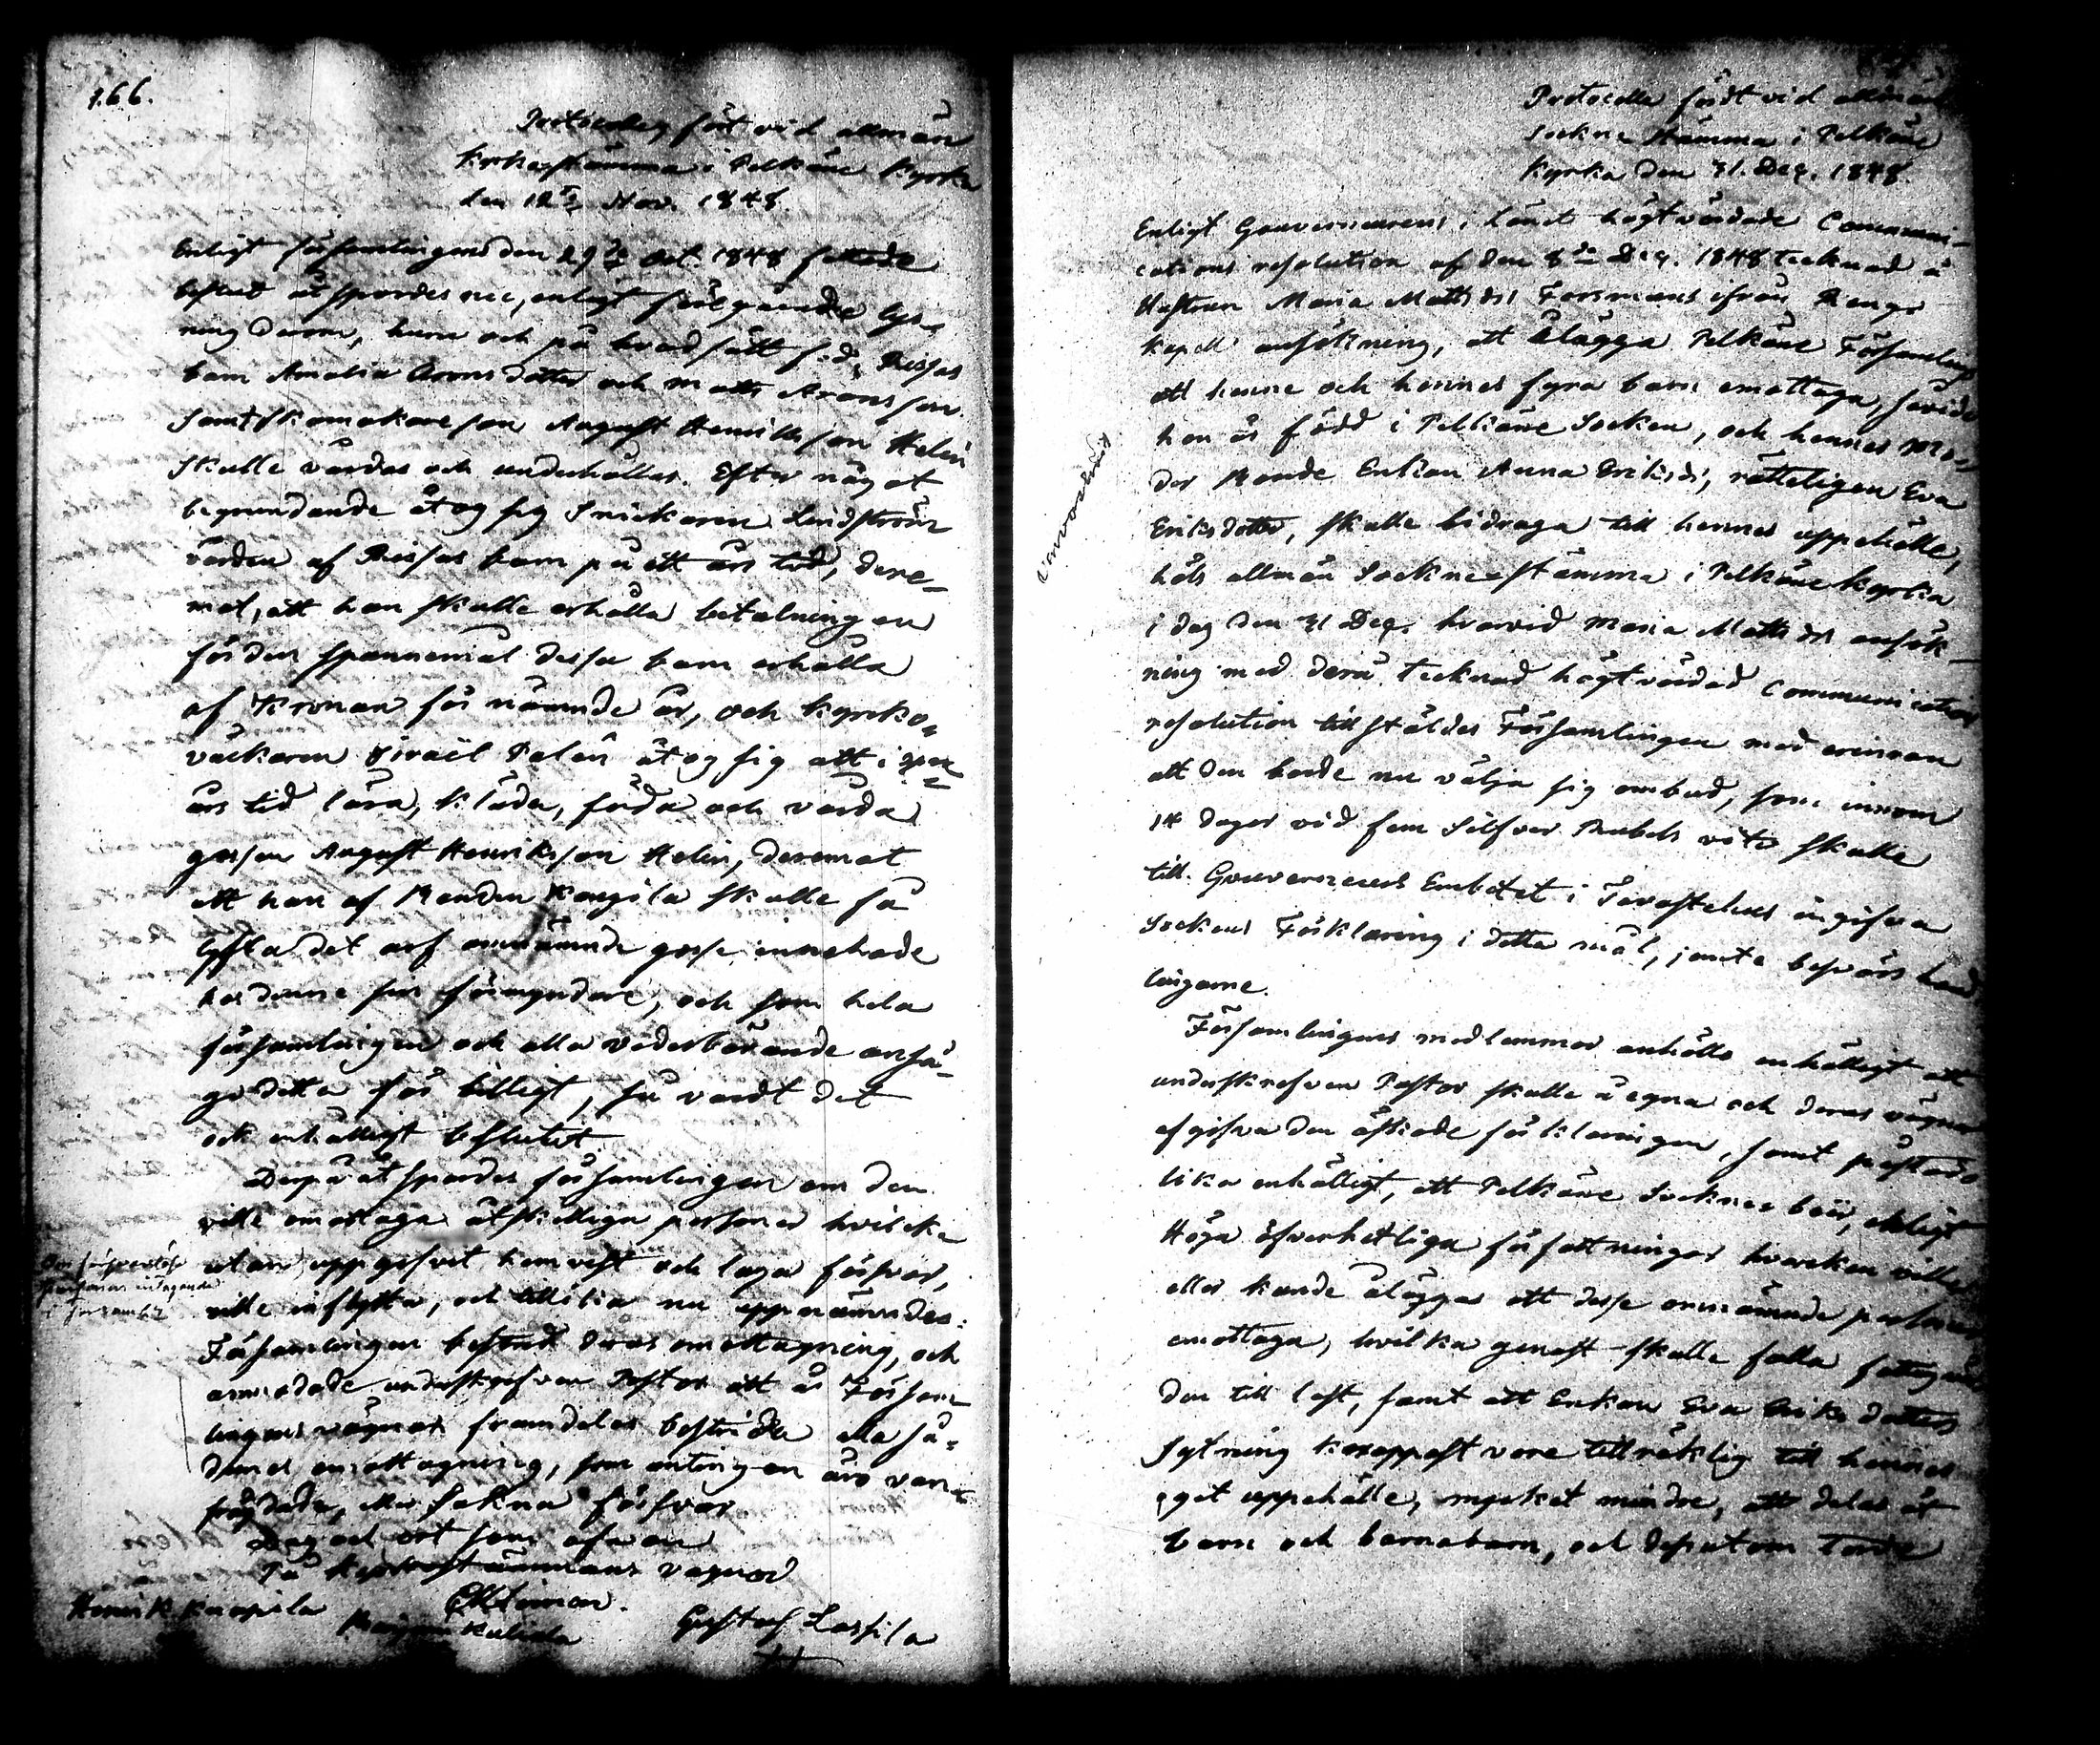 166.
Protocoll, fört vid allmän
Kyrkostämma i Pelkäne Kyrka
den 12te Nov. 1848.
Enligt församlingens den 29de Oct. 1848 fattade
beslut åtspordes nu, enligt föregående lys-
ning derom, huru och på hvad sätt
barn Amalia Aronsdotter och Matts Aronsson
samt skomakare son August Henriksson Helin
skulle vårdas och underhållas. Efter något
begrundande åtog sig Snickaren Lindström
vården af barn på ett års tid, dere-
mot, att han skulle erhålla betalningen
för den spannemål dessa barn erhålla
af Kronan för nämnde år, och kyrko-
väckaren Israël Palén åtog sig att i
års tid lära, kläda, föda och vårda
gossen August Henriksson Helin, deremot
att han af Bonden Kaupila skulle få
lyfta det arf omnämnde gosse innehade
hos denne sin förmyndare, och som hela
församlingen och alla vederbörande anså-
go detta för billigt, så vardt det
ock enhälligt beslutet.
Derpå åtspordes församlingen om den
ville emottaga åtskilliga personer hvilka
utan uppgifvet hemvist och laga försvar,
ville inflytta, och hvilka nu uppnämndes.
Församlingen bestred deras emottagning, och
anmodade underskrefven Pastor att å Församl-
lingens vägnar framdeles bestrida alla så-
danas emottagning, som antingen äro van-
frejdade, eller sakna försvar.
Dag och ort som ofvan
På Kyrkostämmans vägnar
Om försvarslöse
personers intagande
i församl.
Henrik Kaupila
Kukola
Gustaf Lassila
Protocoll fördt vid allmän
Sockne Stämma i Pelkäne
Kyrka den 31. Dec. 1848.
Enligt Gouverneurens i länet högtvördade Communi-
cations resolution af den 8de Dec. 1848 tecknad å
Hustrun Maria Matts dr Forsmans ifrån
kapell ansökning, att ålägga Pelkäne Församling
att henne och hennes fyra barn emottaga, såvida
hon är född i Pelkäne Socken, och hennes Mo-
der Bonde Enkan Anna Eriksdr, rätteligen Eva
Eriksdotter, skulle bidraga till hennes uppehälle,
höls allmän Sockne stämma i Pelkäne kyrka
i dag den 31 Dec. hvarvid Maria Matts dr ansök-
ning med derå tecknad högtvördad Communications
resolution tillstäldes Församlingen med erinran
att den borde nu välja sig ombud, som innom
14 dagar vid fem Silfver Rubels vite skulle
till Gouverneurs Embetet i Tavastehus ingifva
Sockens Förklaring i detta mål, jemte besvärs hand
lingarne.
Församlingens medlemmar anhöllo enhälligt att
underskrefven Pastor skulle å egna och deras vägnar
afgifva den äskade förklaringen, samt påstodo
lika enhälligt, att Pelkäne Sockne boer, enligt
Höga öfverhetliga författningar hvarken ville
eller kunde åläggas att desse omnämnde personer
emottaga, hvilka genast skulle falla fattigvår
den till last, samt att Enkan Eva Eriksdotters
sytning knappast vore tillräklig till hennes
eget uppehälle, mycket mindre, att delas åt
barn och barnabarn, och dessutom torde